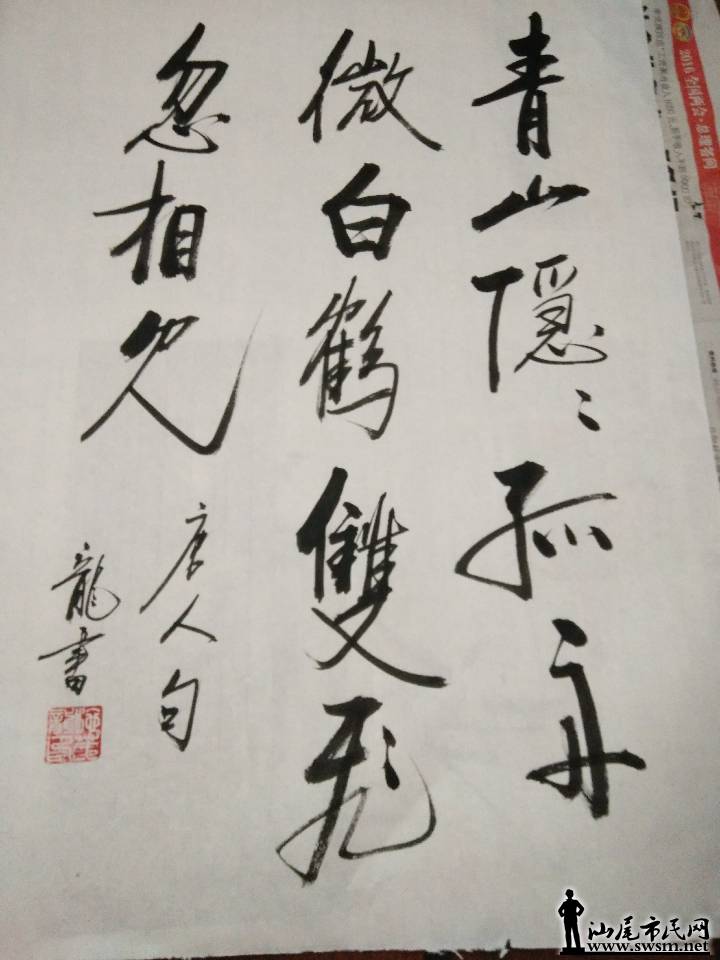 青山隱〻孤舟
微白鶴雙飛
忽相見
唐人句
龍書
2016全国两会·总理答问
汕尾市民网
www.swsm.net